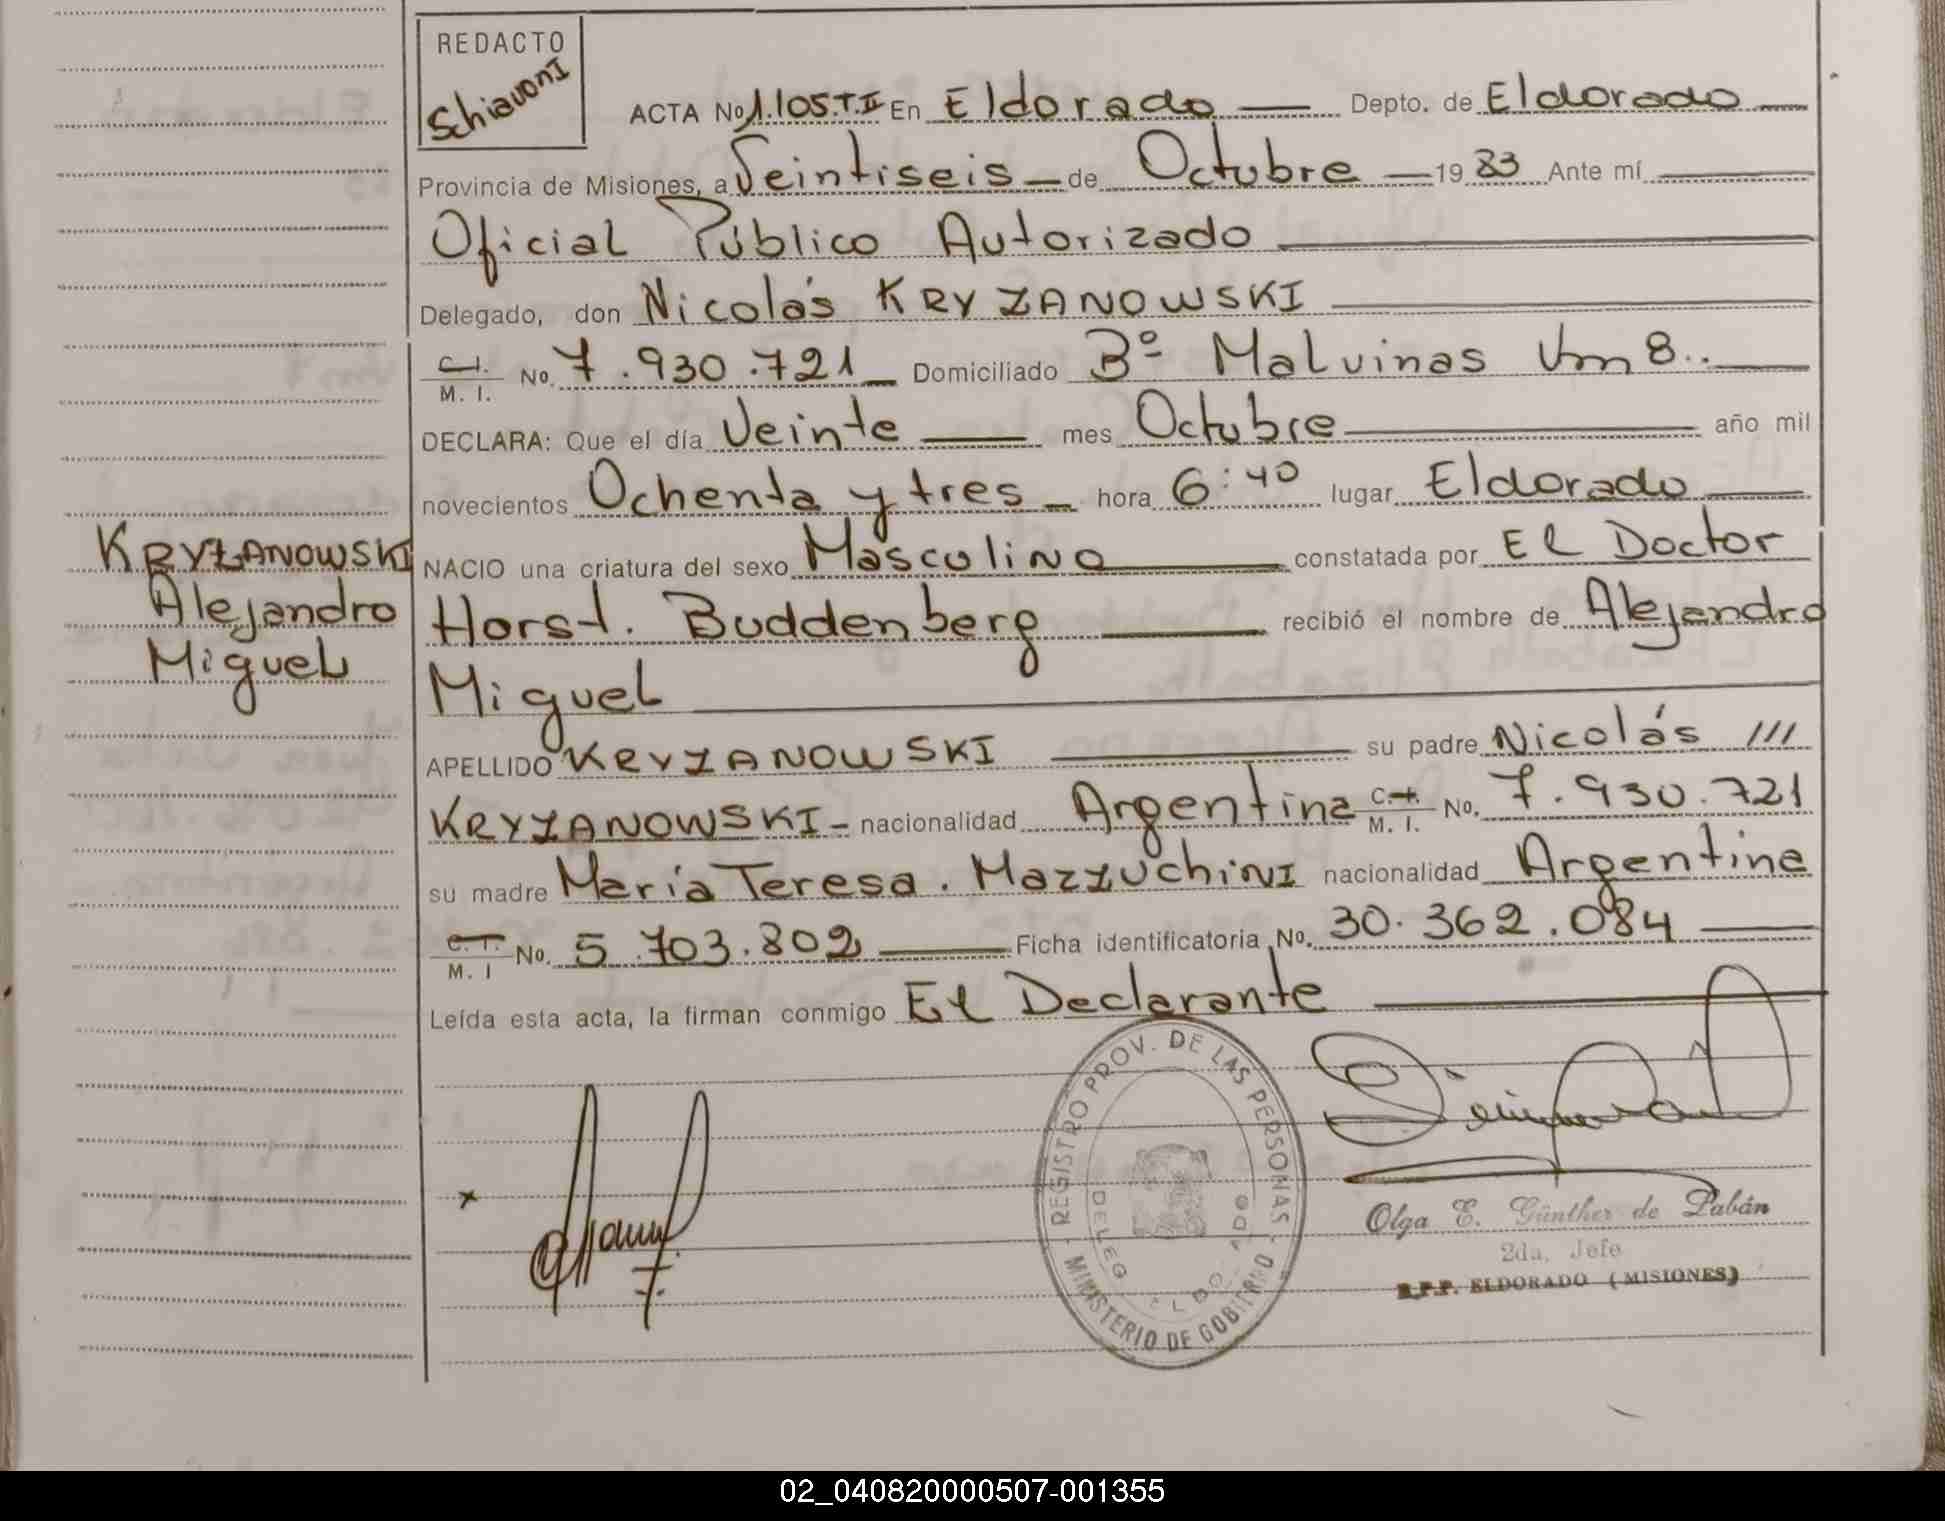 REDACTO
SchiavonI
ACTA No 1.105.T.II En Eldorado Depto. de Eldorado
Provincia de Misiones, a Veintiseis de Octubre 19 83 Ante mí
Oficial Público Autorizado
Delegado, don Nicolás KRYZANOWSKI
C.I. M. I. No. 7.930.721 Domiciliado Bº Malvinas Km 8..
DECLARA: Que el día Veinte mes Octubre año mil
novecientos Ochenta y tres hora 6:40 lugar Eldorado
NACIO una criatura del sexo Masculino constatada por El Doctor
Horst. Buddenberg recibió el nombre de Alejandro
Miguel
KRYZANOWSKI
Alejandro
Miguel
APELLIDO KRYZANOWSKI su padre Nicolás ///
KRYZANOWSKI - nacionalidad Argentina C.I. M. I. No. 7.930.721
su madre María Teresa. MazzuchiNI nacionalidad Argentina
C.I. M. I No. 5.703.802 Ficha identificatoria No. 30.362.084
Leída esta acta, la firman conmigo El Declarante
REGISTRO PROV. DE LAS PERSONAS
MINISTERIO DE GOBIERNO
DELEG ELDORADO
Olga E. Günther de Pabán
2da. Jefe
R.P.P. ELDORADO (MISIONES)
02_040820000507-001355